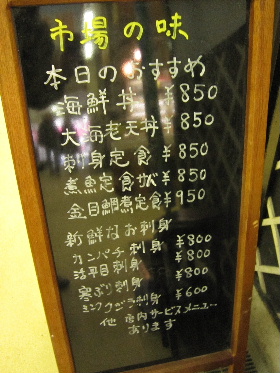 市場の味
本日のおすすめ
海鮮丼 ¥850
大海老天丼 ¥850
刺身定食 ¥850
煮魚定食 ¥850
金目鯛煮定食 ¥950
新鮮なお刺身
カンパチ刺身 ¥800
活平目刺身 ¥800
寒ぶり刺身 ¥800
ミンククジラ刺身 ¥600
他 店内サービスメニュー
あります